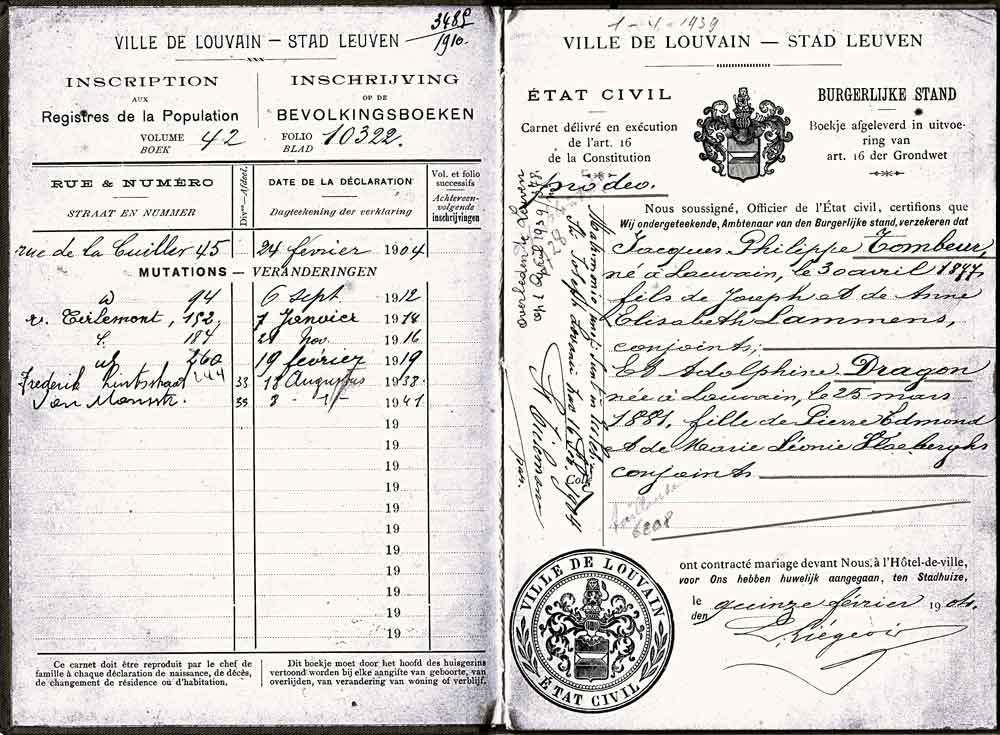 3485
1910.
VILLE DE LOUVAIN — STAD LEUVEN
INSCRIPTION
AUX
Registres de la Population
VOLUME
BOEK
42
INSCHRIJVING
OP DE
BEVOLKINGSBOEKEN
FOLIO
BLAD
10322.
RUE & NUMÉRO
STRAAT EN NUMMER
Divon-Afdeel.
DATE DE LA DÉCLARATION
Dagteekening der verklaring
Vol. et folio
successifs
Achtereen-
volgende
inschrijvingen
rue de la Cuiller 45 24 février 1904
MUTATIONS — VERANDERINGEN
94 6 sept. 1912
r. Tirlemont, 152, 7 Janvier 1914
184 2 nov. 1916
260 19 février 1919
Frederik Lintsstraat 244 33 18 Augustus 1938.
Van Monsstr. 39 8 - 1941
19
19
19
19
19
19
19
19
19
19
19
Ce carnet doit être reproduit par le chef de
famille à chaque déclaration de naissance, de décès,
de changement de résidence ou d'habitation.
Dit boekje moet door het hoofd des huisgezins
vertoond worden bij elke aangifte van geboorte, van
overlijden, van verandering van woning of verblijf.
1-4-1939
VILLE DE LOUVAIN — STAD LEUVEN
ÉTAT CIVIL
Carnet délivré en exécution
de l'art. 16
de la Constitution
BURGERLIJKE STAND
Boekje afgeleverd in uitvoe-
ring van
art. 16 der Grondwet
pro deo.
Nous soussigné, Officier de l'État civil, certifions que
Wij ondergeteekende, Ambtenaar van den Burgerlijke stand, verzekeren dat
Jacques Philippe Tombeur,
né à Louvain, le 30 avril 1877
fils de Joseph et de Anne
Elisabeth Lammens,
conjoints;
Et Adolphine Dragon
née à Louvain, le 25 mars
1881, fille de Pierre Edmond
et de Marie Léonie
conjoints
overleden te Leuven
op 1 April 1939
Matrimonio juncti sunt in ecclesia
St. Joseph Lovanii hac 16 Feb. 1904
par.
6208
ont contracté mariage devant Nous, à l'Hôtel-de-ville,
voor Ons hebben huwelijk aangegaan, ten Stadhuize,
le
den
quinze février 1904.
Liégeois
VILLE DE LOUVAIN
ÉTAT CIVIL